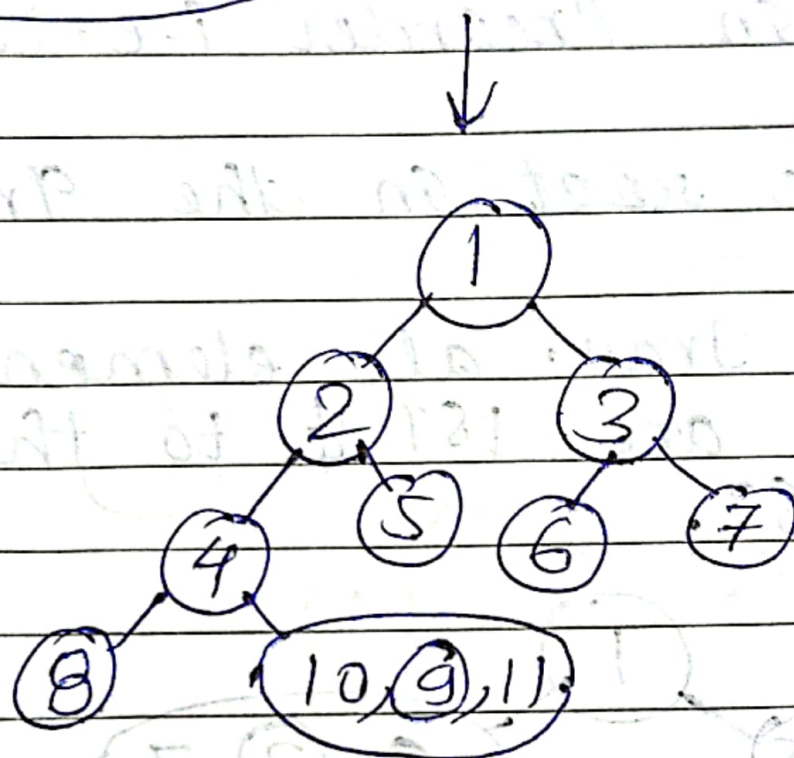 1
2 3
4 5 6 7
8 10, 9, 11